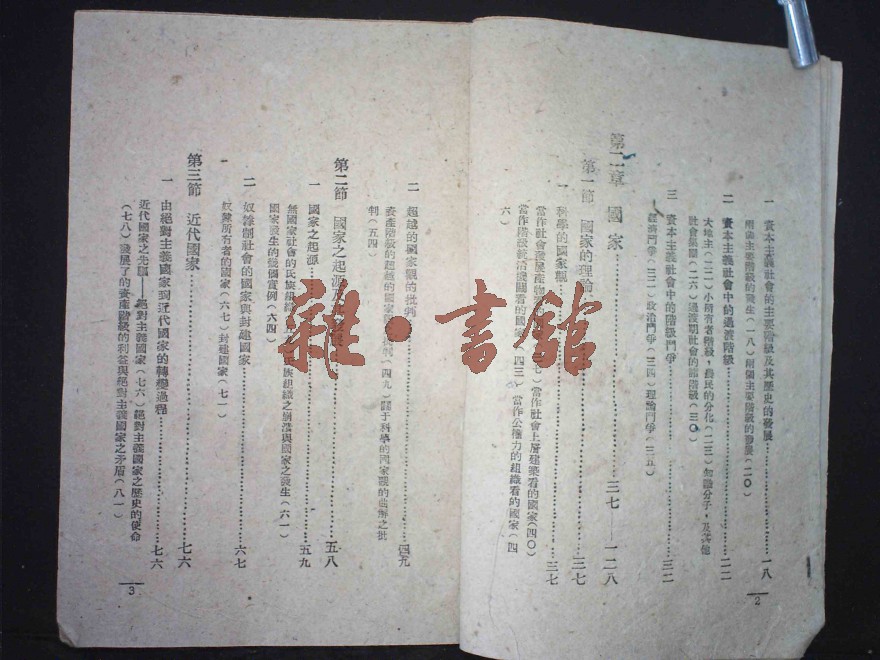 一 資本主義社會的主要階級及其歷史的發展…………一八
兩個主要階級的發生（一八）兩個主要階級的發展（二〇）
二 資本主義社會中的過渡階級…………二二
大地主（二二）小所有者階級，農民的分化（二三）知識分子，及其他
社會集團（二六）過渡期社會的諸階級（三〇）
三 資本主義社會中的階級鬥爭…………三二
經濟鬥爭（三二）政治鬥爭（三四）理論鬥爭（三五）
第二章 國家…………三七——一二八
第一節 國家的理論…………三七
一 科學的國家觀…………三七
當作社會發展產物看的國家（三七）當作社會上層建築看的國家（四〇）
當作階級統治機關看的國家（四三）當作公權力的組織看的國家（四
六）
2
二 超越的國家觀的批判…………四九
資產階級的超越的國家觀批判（四九）關于科學的國家觀的曲解之批
判（五四）
第二節 國家之起源及其發展…………五八
一 國家之起源…………五九
無國家社會的氏族組織 氏族組織之崩潰與國家之發生（六一）
國家發生的幾個實例（六四）
二 奴隸制社會的國家與封建國家…………六七
奴隸所有者的國家（六七）封建國家（七一）
第三節 近代國家…………七六
一 由絕對主義國家到近代國家的轉變過程…………七六
近代國家之先驅——絕對主義國家（七六）絕對主義國家之歷史的使命
（七八）發展了的資產階級的利益與絕對主義國家之矛盾（八一）
3
雜·書館